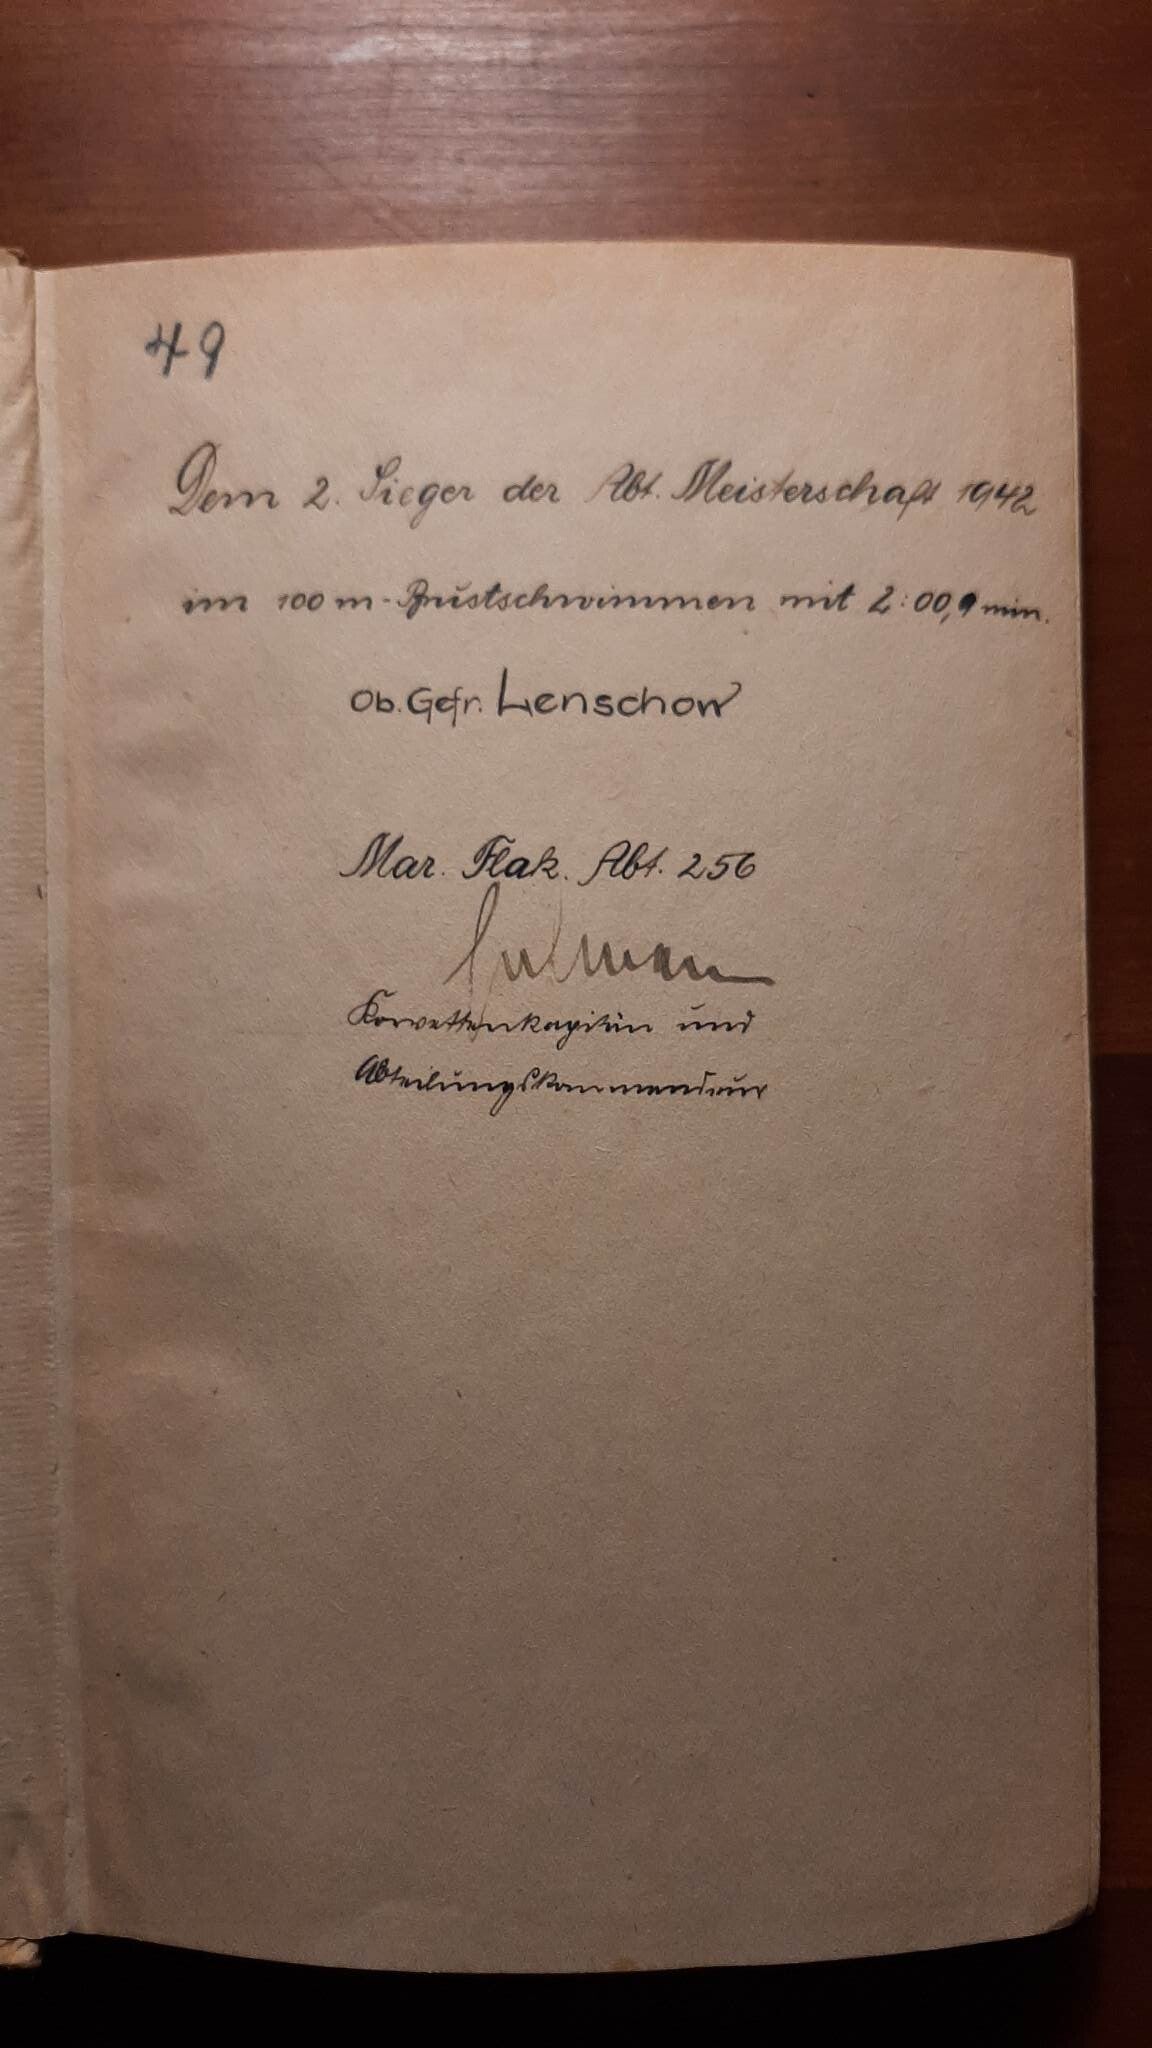 49
Dem 2. Sieger der Abt. Meisterschaft 1942
im 100 m - Brustschwimmen mit 2:00,9 min.
Ob. Gefr. Lenschow
Mar. Flak. Abt. 256
Korvettenkapitän und
Abteilungskommandeur